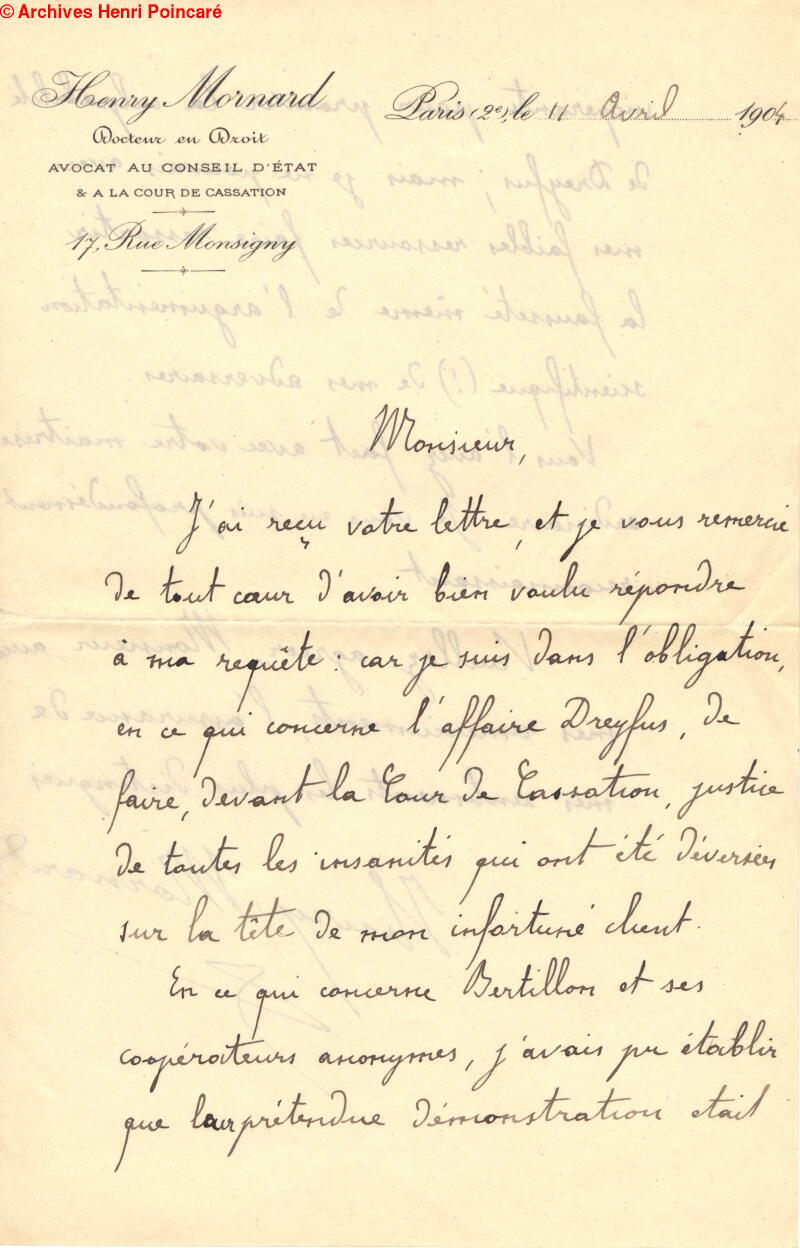 © Archives Henri Poincaré
Henry Mornard
Docteur en Droit
AVOCAT AU CONSEIL D'ÉTAT
& A LA COUR DE CASSATION
17, Rue Monsigny
Paris (2e), le 11 Avril 1904
Monsieur,
J'ai reçu votre lettre, et je vous remercie
de tout cœur d'avoir bien voulu répondre
à ma requête : car je suis dans l'obligation,
en ce qui concerne l'affaire Dreyfus, de
faire, devant la Cour de Cassation, justice
de toutes les insanités qui ont été déversées
sur la tête de mon infortuné client.
En ce qui concerne Bertillon et ses
coopérateurs anonymes, j'avais pu établir
que leur prétendue démonstration était